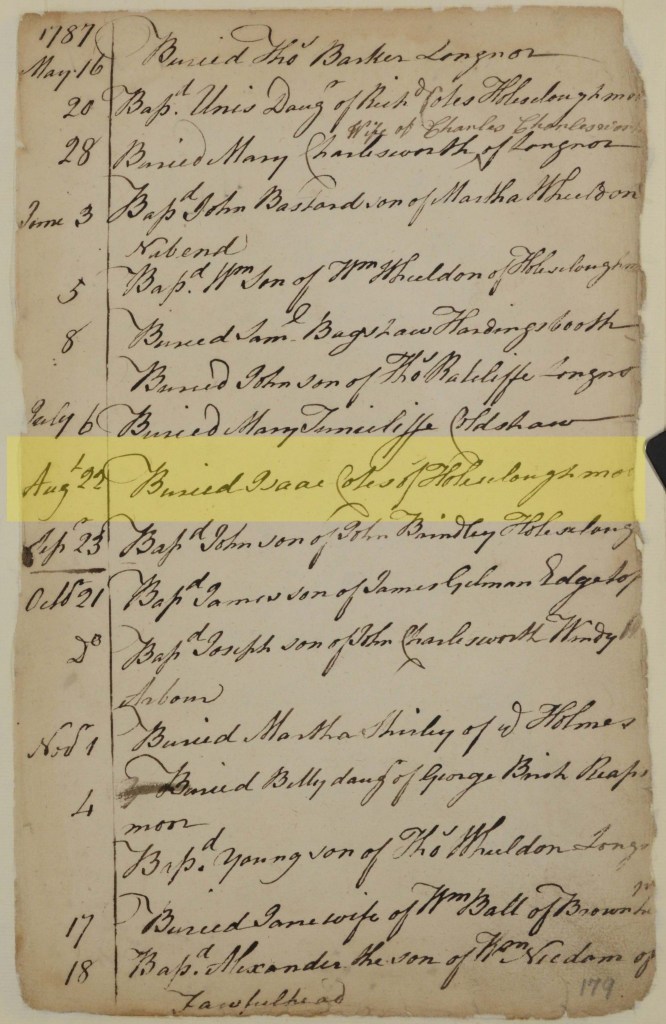 1787
May 16 Buried Thos Barker Longnor
20 Bapd. Unis Daugr of Richd Coles Holseloughmoo
Wife of Charles Charlesworth
28 Buried Mary Charlesworth of Longnor
June 3 Bapd John Bastard son of Martha Wheeldon
Nabend
5 Bapd. Wm Son of Wm Wheeldon of Holselough
8 Buried Saml Bagshaw Hardingsbooth
Buried John son of Thos Ratcliffe Longno
July 6 Buried Mary Tunicliffe Coldshaw
Augt 22 Buried Isaac Coles of Holseloughmoo
Sepr 23 Bapd John son of John Brindley Holseloug
Octbr 21 Bapd James son of James Gilman Edgetop
Do Bapd Joseph son of John Charlesworth Windy
Arbour
Novr 1 Buried Martha Shirley of Holmes
4 Buried Betty daugr of George Birch Reaps
moor
Bapd. Young son of Thos Wheeldon Longn
17 Buried Jane wife of Wm Ball of Brownh
18 Bapd. Alexander the son of Wm Needam of
Fawfulhead
179